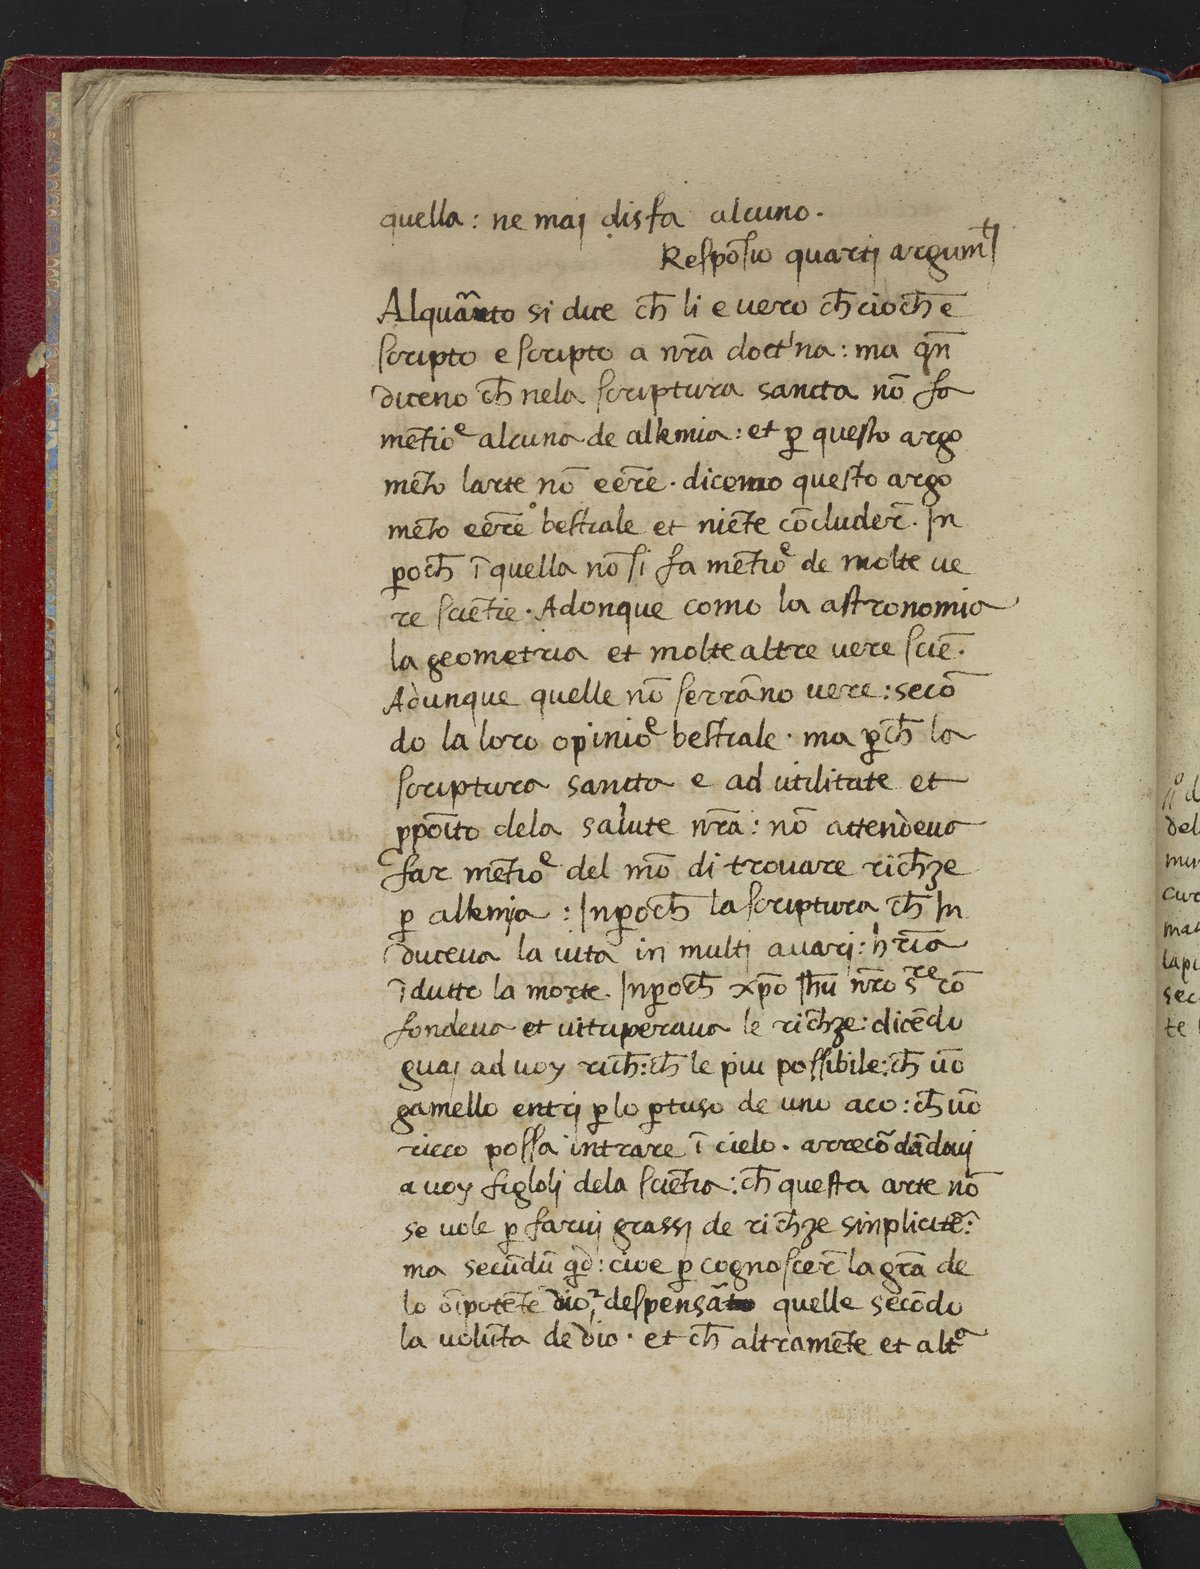 quella: ne maj disfa alcuno.
Respōsio quartj argum̄tj
Alquãnto si dice ch̄ li e vero ch̄ cio ch̄ e
scripto e scripto a nr̄a doctina: ma qn̄
diceno ch̄ nela scriptura sancta nō fa
mētioe alcuna de alkmia: et ꝑ questo argo
mēto larte nō eēre. dicemo questo argo
mēto eēre bestiale et niēte cōcluder̄. In
ꝑoch̄ ī quella nō si fa mētioe de molte ue
re sciētie. Adonque como la astronomia
la geometria et molte altre vere sciē.
Adunque quelle nō serrāno vere: secō
do la loro opinioe bestiale. ma ꝑch̄ la
scriptura sancta e ad utilitate et
ꝓpoīto dela salute nr̄a: nō attendeua
far mētioe del mō di trouare rich̄ze
ꝑ alkmja: Inꝑoch̄ la scriptura ch̄ In
duceua la uita in multj auarj: h̄ria
īdutto la morte. Inꝑoch̄ xp̄o Ih̄u nr̄o sre cō
fondeua et uituperaua le rich̄ze: dicēdo
guaj ad uoy rich̄: ch̄ le piu possibile: ch̄ ūo
gamello entrj ꝑ lo ꝑtuso de uno aco: ch̄ ūo
ricco possa intrare ī cielo. arrecōdādouj
a uoy figlolj dela sciētia: ch̄ questa arte nō
se vole ꝑ faruj grassj de rich̄ze sinplicitē:
ma secūdū qd̄: cioe ꝑ cognoscer̄ la gr̄a de
lo oīpotēte dio, despensāto quelle secōdo
la uolūta de dio. et ch̄ altramēte et alto